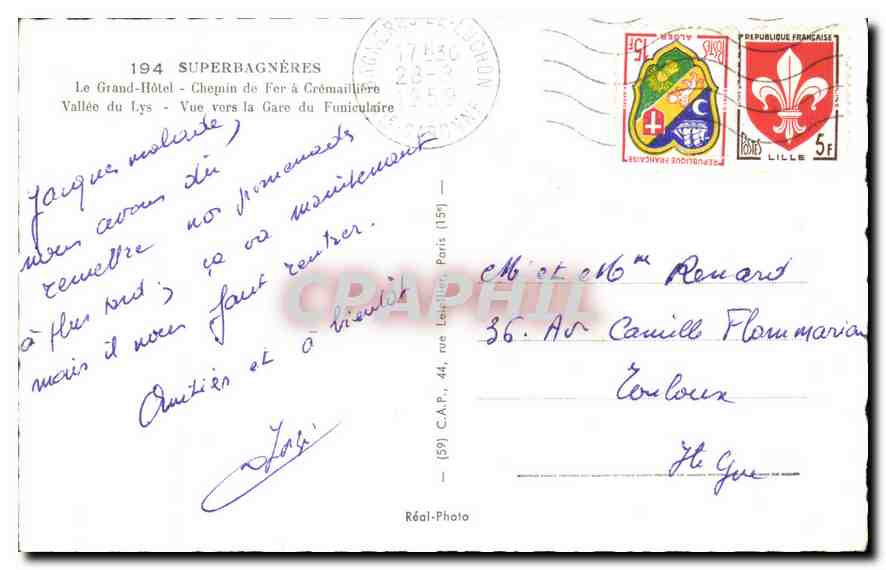 194 SUPERBAGNÈRES
Le Grand-Hôtel - Chemin de Fer à Crémaillière
Vallée du Lys - Vue vers la Gare du Funiculaire
Jacques malade,
nous avons dû,
remettre nos promenades
à plus tard; ça va maintenant
mais il nous faut rentrer.
Amitiés et à bientôt
BAGNERES-DE-LUCHON
17H30
1959
HTE GARONNE
15F
POSTES
ALGER
REPUBLIQUE FRANÇAISE
REPUBLIQUE FRANÇAISE
POSTES
5F
LILLE
CPAPHIL
(59) C.A.P., 44, rue Letellier, Paris (15e)
Mr et Mme Renard
36. Av Camille Flammarion
Toulouse
Hte Gne
Réal-Photo